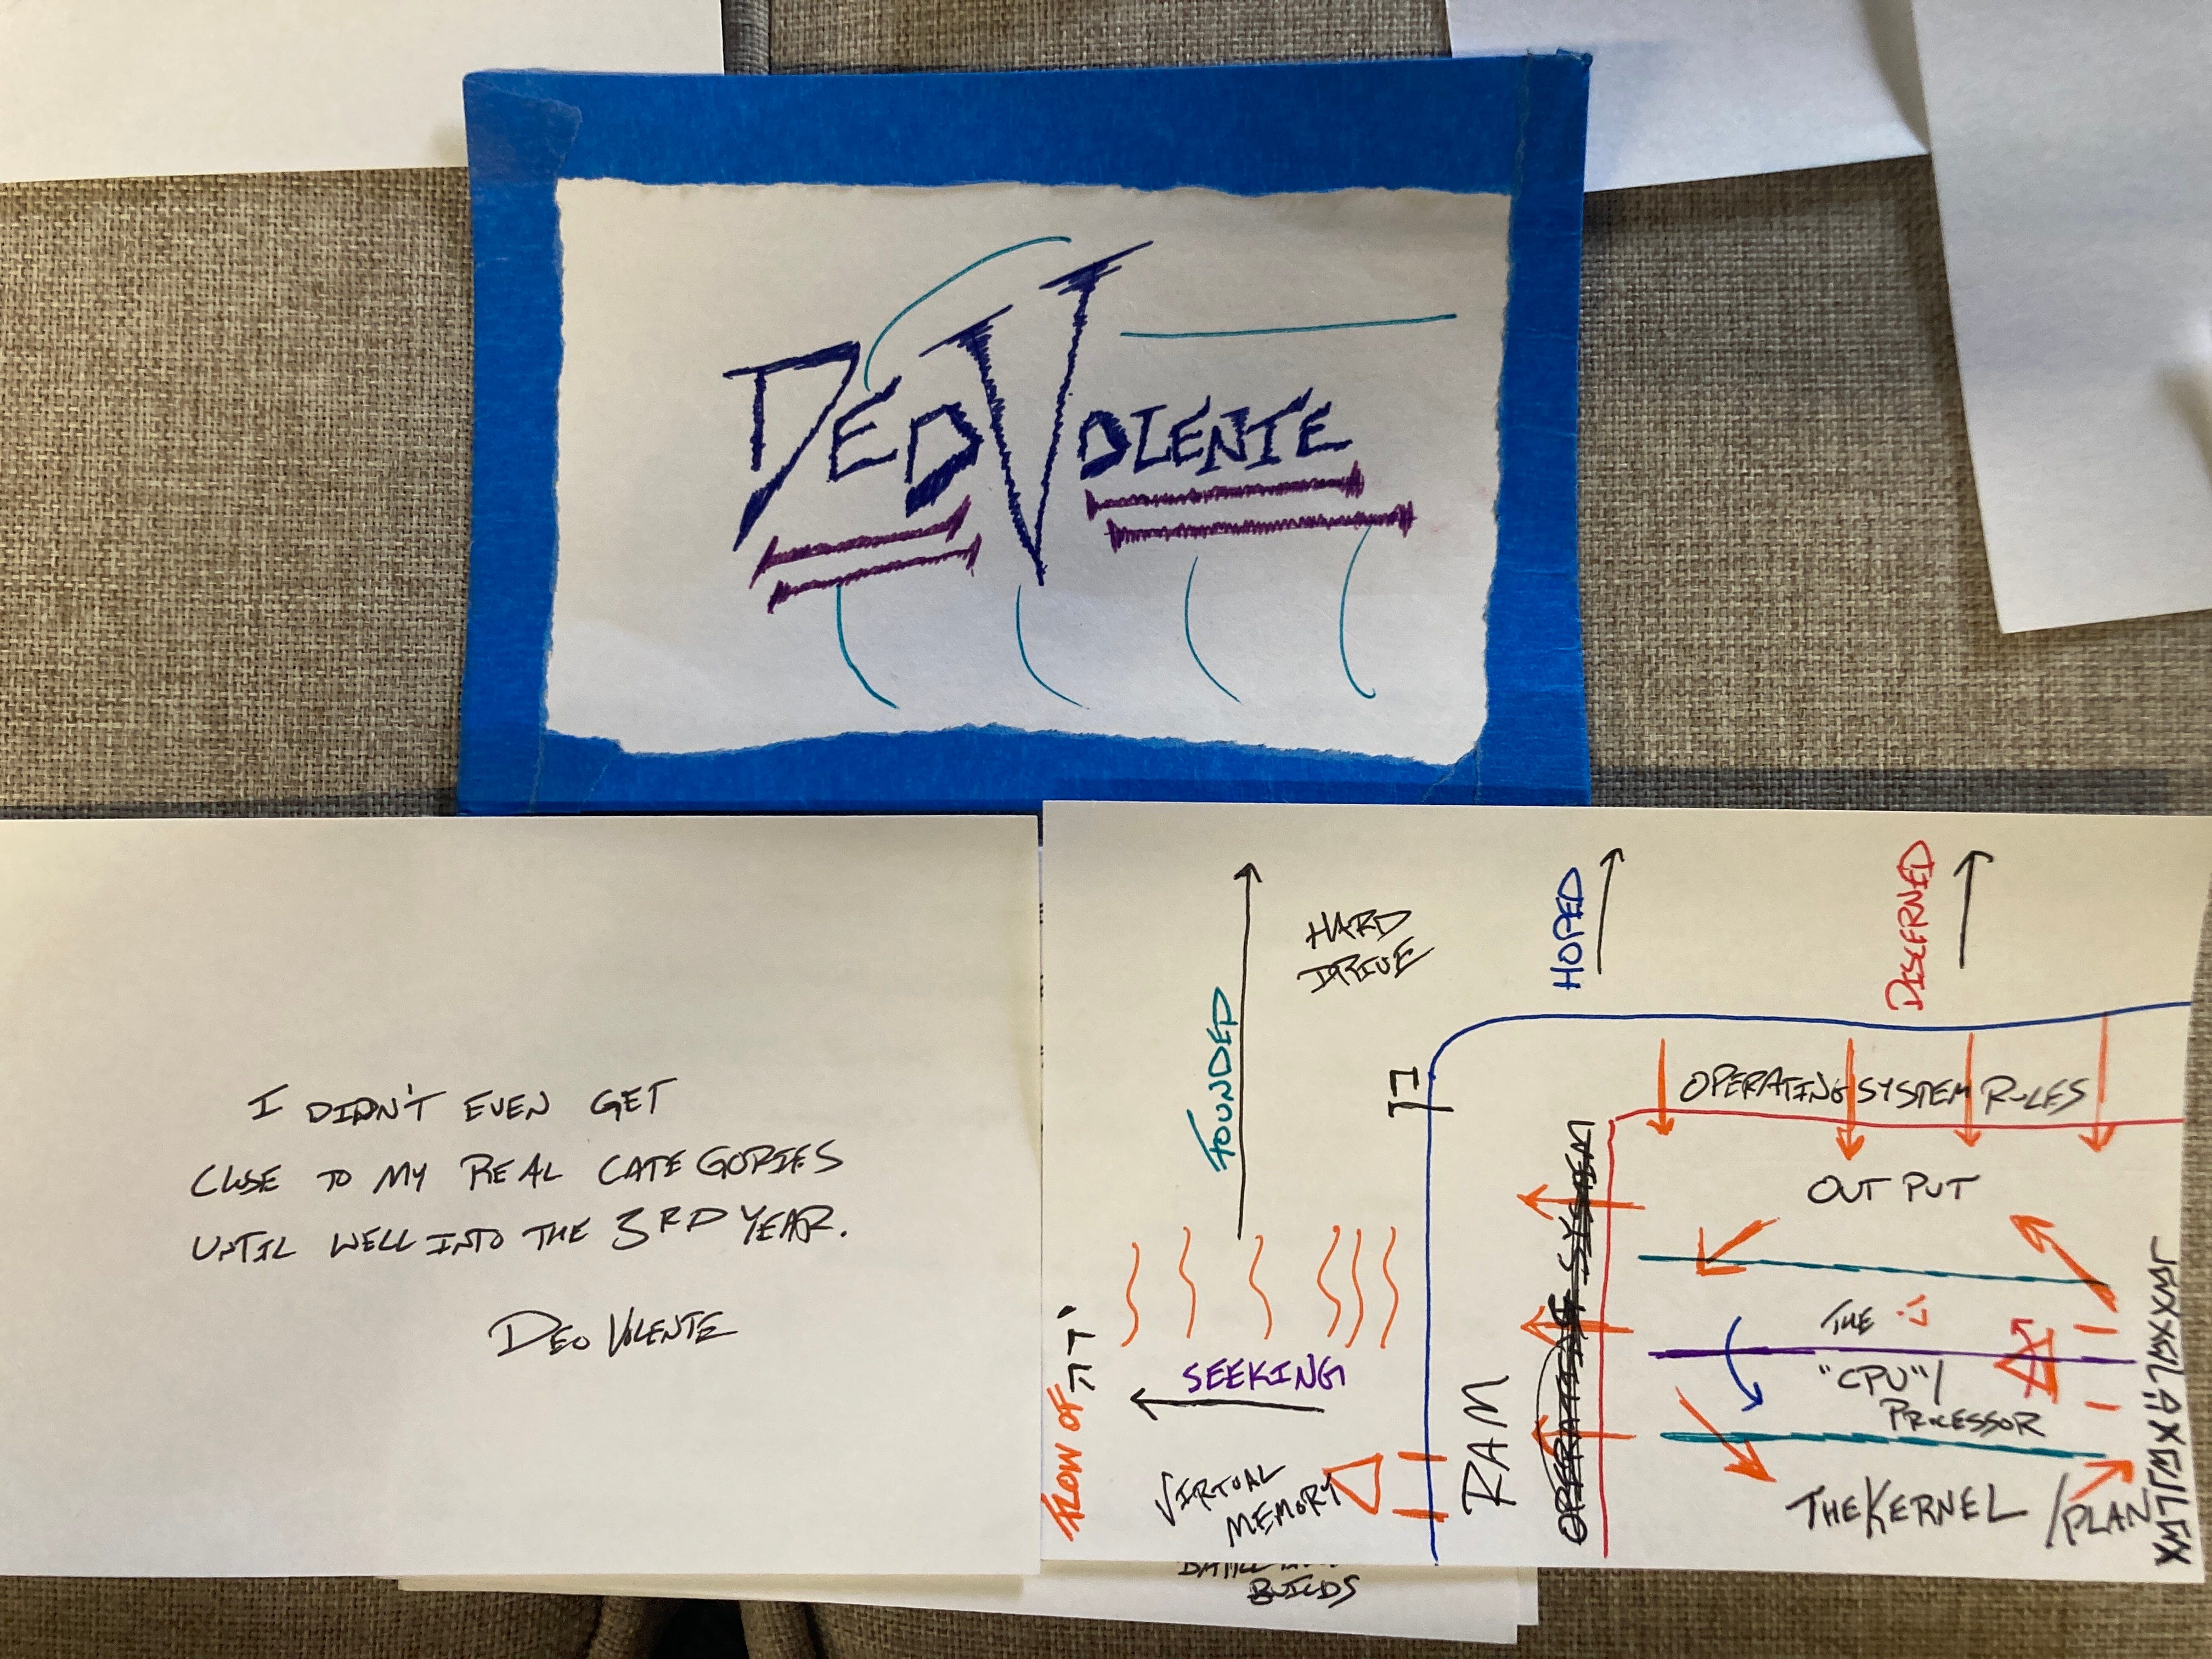 DEO VOLENTE
I DIDN'T EVEN GET
CLOSE TO MY REAL CATEGORIES
UNTIL WELL INTO THE 3RD YEAR.
DEO VOLENTE
FOUNDED
HARD
DRIVE
HOPED
DISCERNED
OPERATING SYSTEM RULES
OUT PUT
OPERATING SYSTEM
THE
"CPU"/
PROCESSOR
SEEKING
FLOW OF
RAM
VIRTUAL
MEMORY
THE KERNEL / PLAN
BUILDS